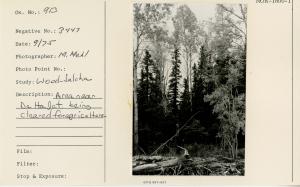 Ox. No.: 913
Negative No.: 3447
Date: 9/75
Photographer: M. Meal
Photo Point No.:
Study: Wood-Salcha
Description: Area near
Delta lot being
cleared for agriculture
Film:
Filter:
Stop & Exposure: